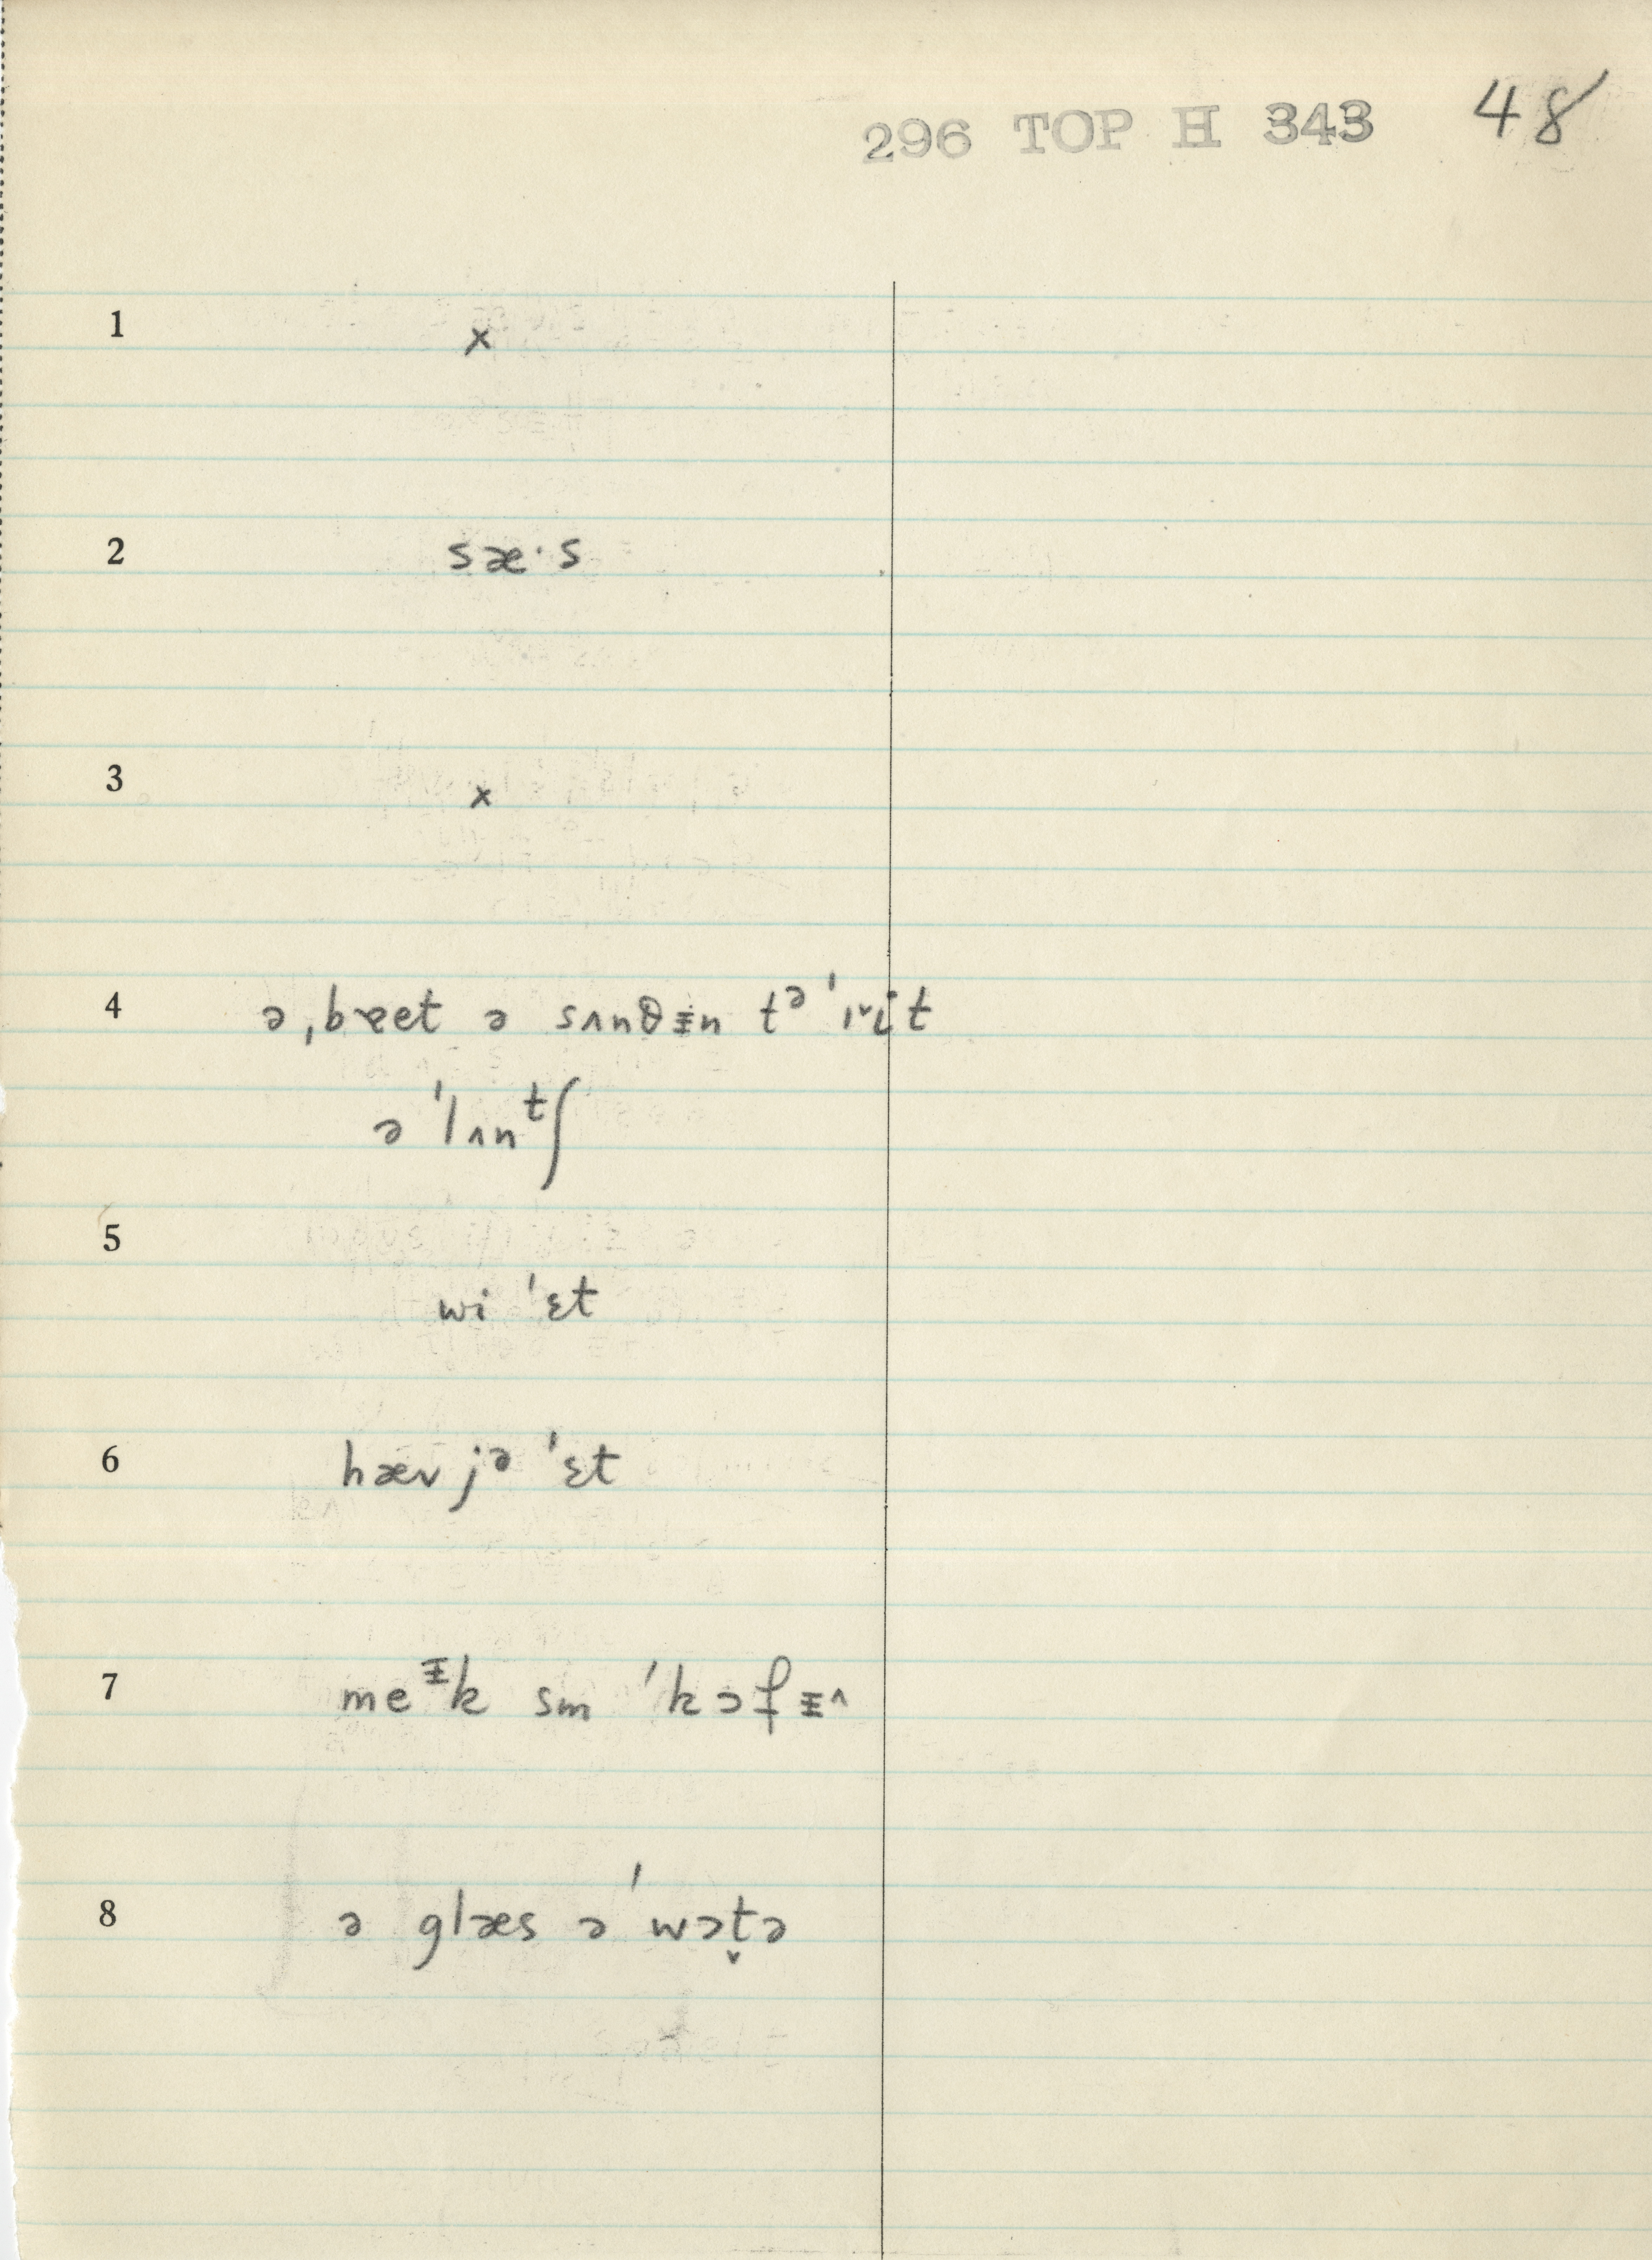 296 TOP H 343 48
1 x
2 sæ·s
3 x
4 ə ˌbɐet ə sʌnθᵻn tᵊ ˈit
ə ˈlʌnᵗʃ
5
wi ˈɛt
6 hæv jᵊ ˈɛt
7 meᵻk sm ˈkɔfᵻ^
8 ə glæs ə ˈwɔt̬ə